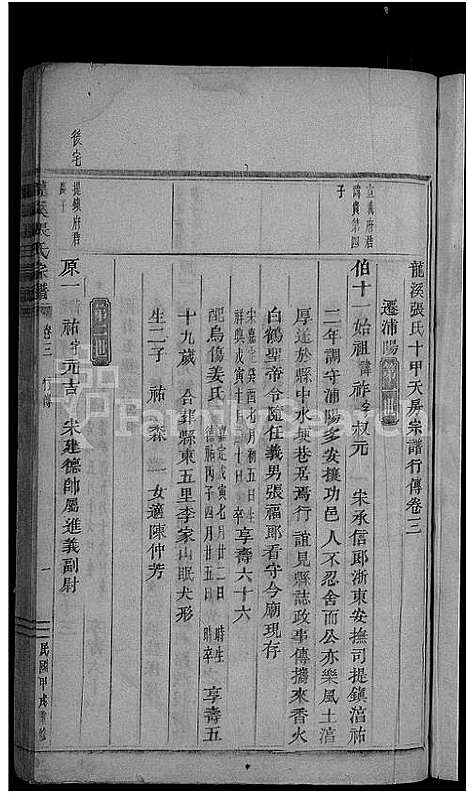 龍溪張氏十甲天房宗譜行傳卷三
遷浦陽第一世
宣義府君諱貴第四子
伯十一始祖諱祚字叔元 宋承信郎浙東安撫司提鎮淯祐
二年調守浦陽多安攘功邑人不忍舍而公亦樂風土淯
厚遂於縣中水塤巷居焉行誼見縣誌政事傳攜來香火
白鶴聖帝令隨任義男張福郎看守今廟現存
宋嘉定癸酉七月初五日生
祥興戊寅十月十日卒 享壽六十六
配烏傷姜氏 嘉定戊寅七月廿二日時生
德祐丙子四月廿五日時卒 享壽五
十九歲 合葬縣東五里李家山眠犬形
生二子 祐 一女適陳仲芳
第二世
後宅
提鎮府君長子
原一 祐字元吉 宋建德帥屬進義副尉
龍溪張氏宗譜 卷三 行傳 一 民國甲戌重修
FamilySearch